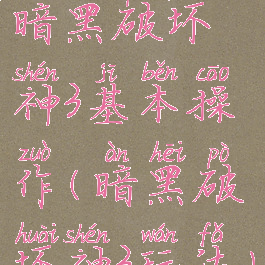 暗黑破坏
shén jī běn cāo
神3基本操
zuò àn hēi pò
作(暗黑破
huài shén wán fǎ
坏神3玩法)